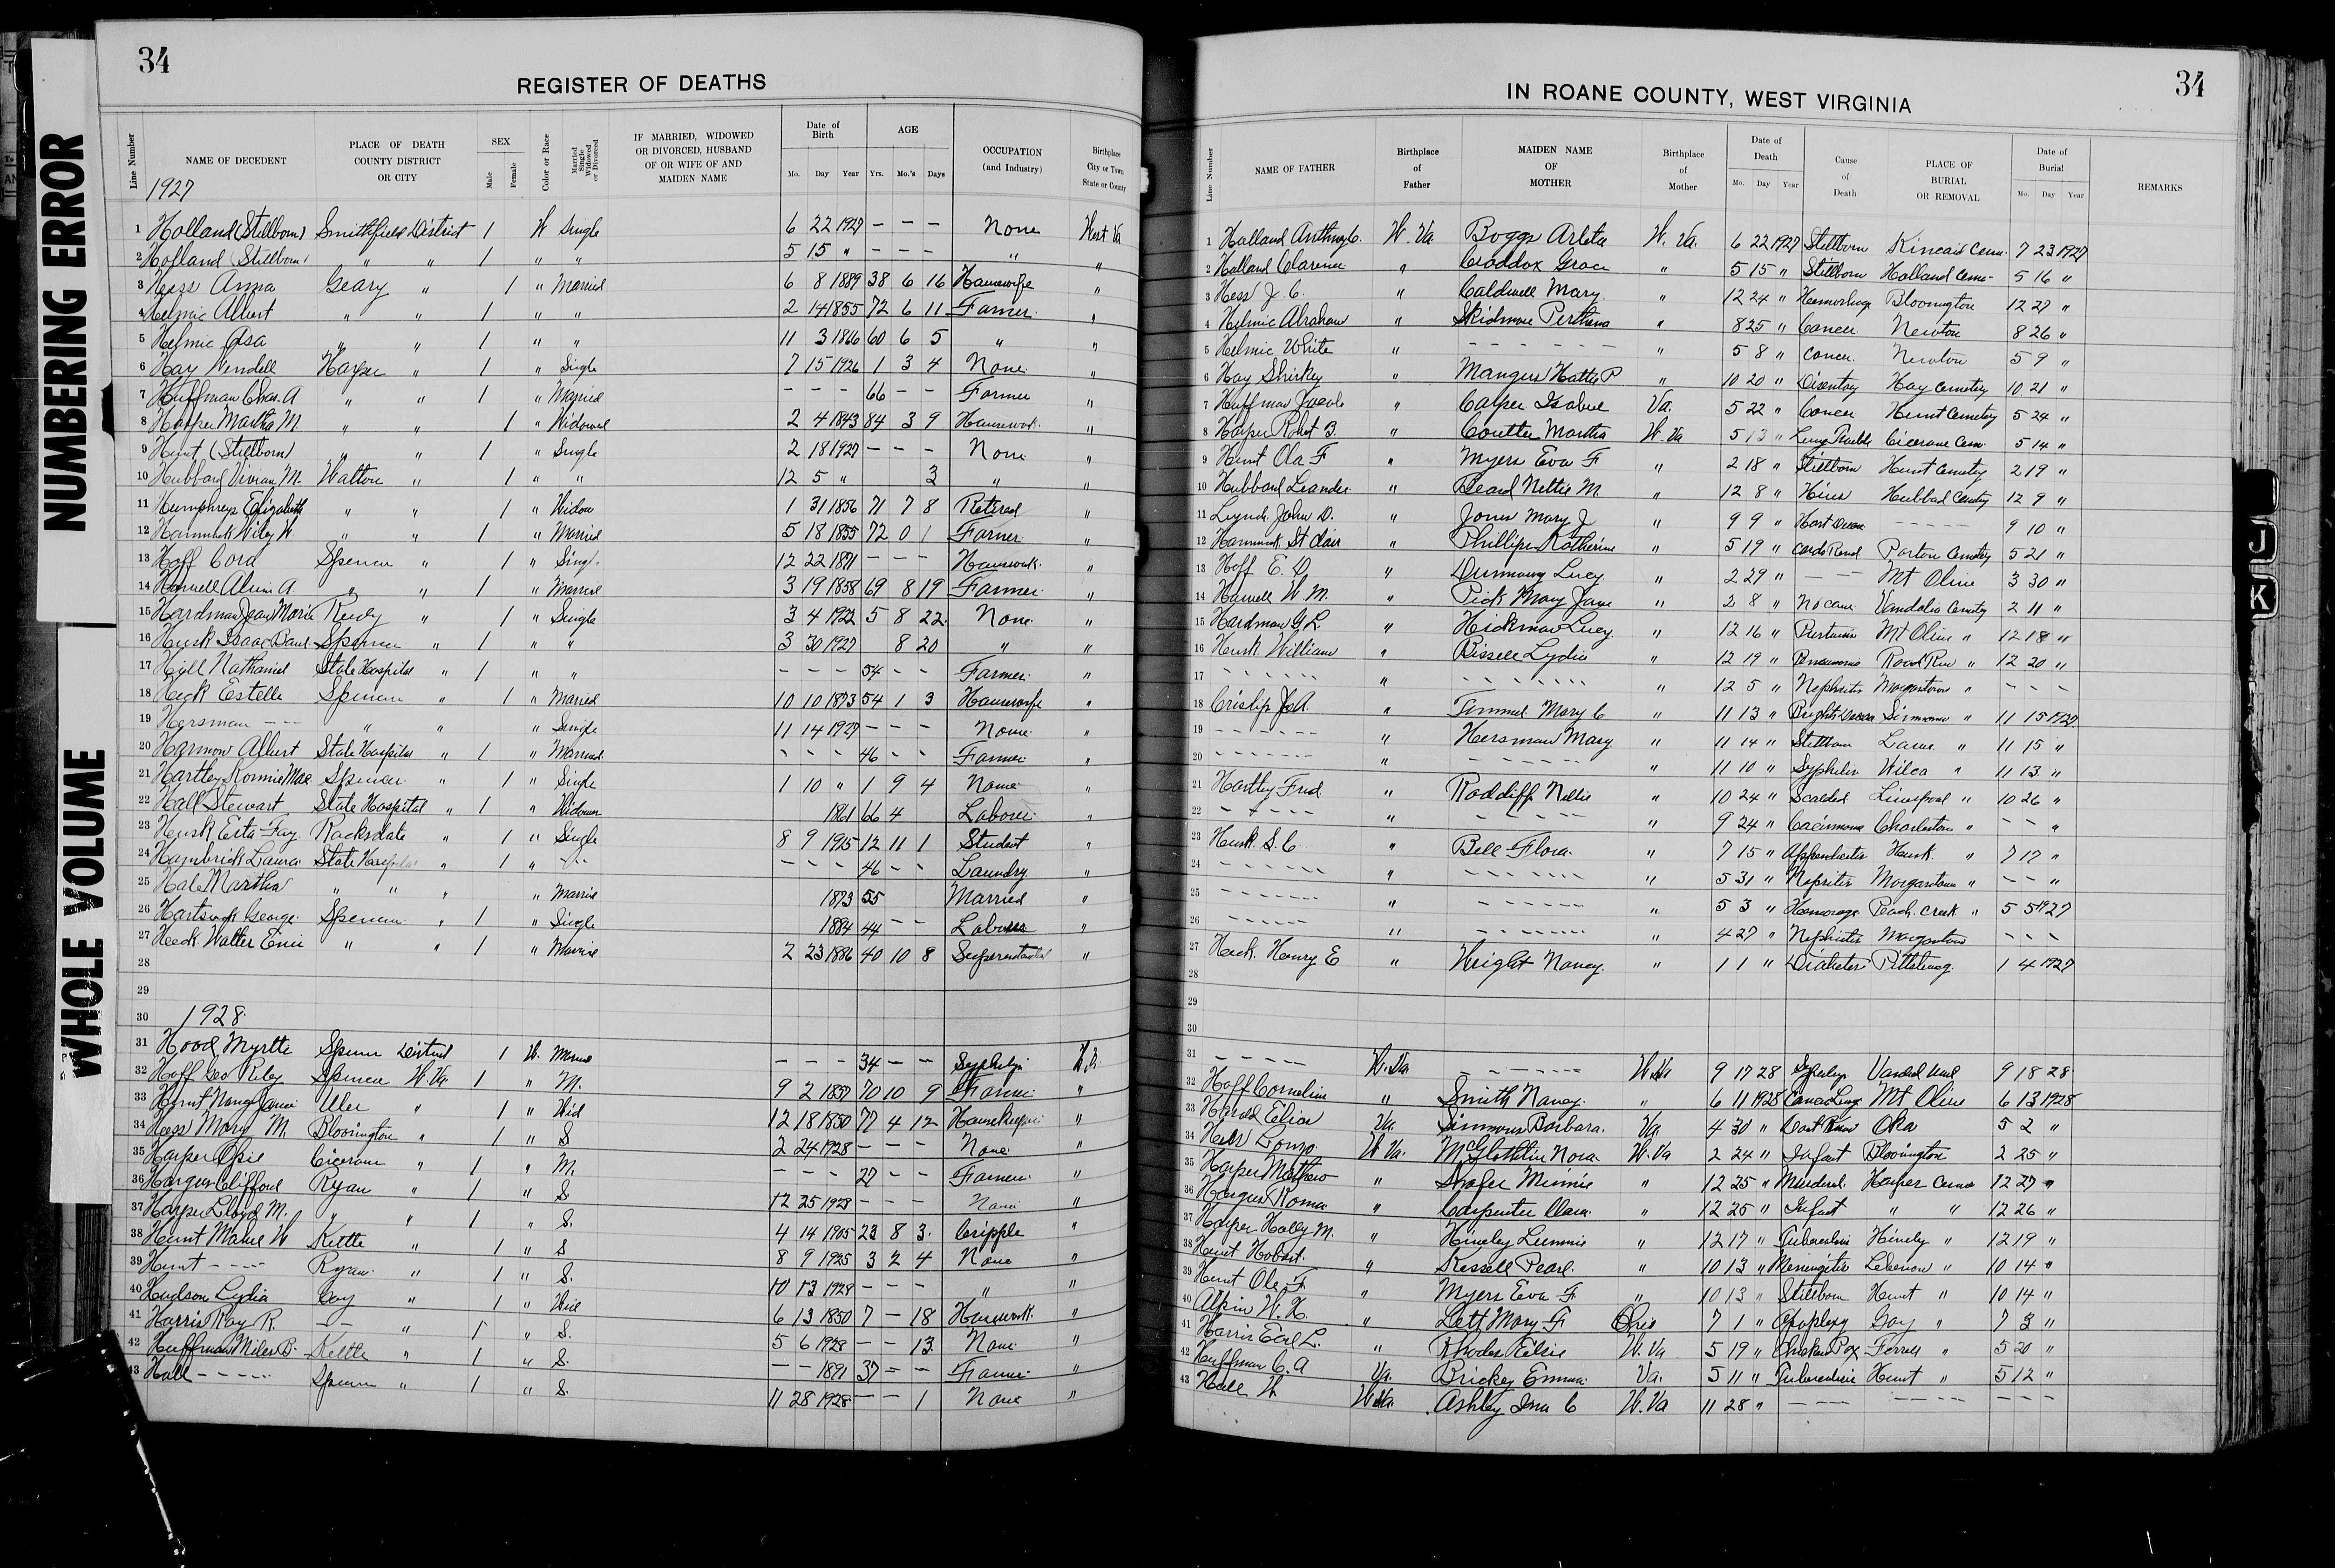 NUMBERING ERROR
WHOLE VOLUME
34
REGISTER OF DEATHS
Line Number NAME OF DECEDENT PLACE OF DEATH COUNTY DISTRICT OR CITY SEX Male Female Color or Race Married Single Widowed or Divorced IF MARRIED, WIDOWED OR DIVORCED, HUSBAND OF OR WIFE OF AND MAIDEN NAME Date of Birth Mo. Day Year AGE Yrs. Mo.'s Days OCCUPATION (and Industry) Birthplace City or Town State or County
1927
1 Holland (Stillborn) Smithfield District 1 W Single 6 22 1927 — — — None West Va
2 Holland (Stillborn) " " 1 " " 5 15 " — — — " "
3 Hess Anna Geary " 1 " Married 6 8 1889 38 6 16 Housewife "
4 Helmic Albert " " 1 " " 2 14 1855 72 6 11 Farmer "
5 Helmic Asa " " 1 " " 11 3 1866 60 6 5 " "
6 Hay Wendell Harper " 1 " Single 7 15 1926 1 3 4 None "
7 Huffman Chas. A " " 1 " Married — — — 66 — Farmer "
8 Harper Martha M. " " 1 " Widowed 2 4 1843 84 3 9 Housework "
9 Hunt (Stillborn) " " 1 " Single 2 18 1927 — — — None "
10 Hubbard Vivian M. Walton " 1 " " 12 5 " 3 " "
11 Humphreys Elizabeth " " 1 " Widow 1 31 1856 71 7 8 Retired "
12 Hammack Wiley W " " 1 " Married 5 18 1855 72 0 1 Farmer "
13 Hoff Cora Spencer " 1 " Single 12 22 1871 — — — Housework "
14 Harvell Alvin A. " " 1 " Married 3 19 1858 69 8 19 Farmer "
15 Hardman Jean Marie Reedy " 1 " Single 3 4 1922 5 8 22 None "
16 Husk Isaac Paul Spencer " 1 " " 3 30 1927 8 20 " "
17 Hill Nathaniel State Hospital " 1 " " — — — 54 — — Farmer "
18 Heck Estelle Spencer " 1 " Married 10 10 1873 54 1 3 Housewife "
19 Hersman — — " " " Single 11 14 1927 — — — None "
20 Harmon Albert State Hospital " 1 " Married — — — 46 — — Farmer "
21 Hartley Kormie Mae Spencer " 1 " Single 1 10 " 1 9 4 None "
22 Hall Stewart State Hospital " 1 " Widower 1861 66 4 Laborer "
23 Husk Esta Fay Rocksdale " 1 " Single 8 9 1915 12 11 1 Student "
24 Hambrick Laura State Hospital " 1 " — — — — 46 — — Laundry "
25 Hale Martha " " " " Married 1873 55 Married "
26 George Spencer " 1 " Single 1884 44 — — Laborer "
27 Heck Walter " " 1 " Married 2 23 1886 40 10 8 Superintendent "
28
29
30 1928
31 Hood Myrtle Spencer District 1 W. Married — — — 34 — — Syphilis W.V.
32 Hoff Geo Riley Spencer W.Va. 1 " M. 9 2 1857 70 10 9 Farmer "
33 Hunt Nancy Jane Uler " 1 " Wid 12 18 1850 77 4 12 Housekeeper "
34 Hess Mary M. Bloomington " 1 " S 2 24 1928 — — — None "
35 Harper Opie Cicerone " 1 " M. — — — 27 — — Farmer "
36 Hargus Clifford Ryan " 1 " S 12 25 1928 — — — None "
37 Harper Lloyd M. " " 1 " S. 4 14 1905 23 8 3 Cripple "
38 Hunt Mabel W Kettle " 1 " S 8 9 1925 3 2 4 None "
39 Hunt — — — Ryan " 1 " S. 10 13 1928 — — — " "
40 Hudson Lydia Gay " 1 " Wid 6 13 1850 7 — 18 Housework "
41 Harris Ray R. — — " 1 " S. 5 6 1928 — — 13 None "
42 Huffman Miles B. Kettle " 1 " S. — — 1891 37 = — Farmer "
43 Hall — — — Spencer " 1 " S. 11 28 1928 — — 1 None "
34
IN ROANE COUNTY, WEST VIRGINIA
Line Number NAME OF FATHER Birthplace of Father MAIDEN NAME OF MOTHER Birthplace of Mother Date of Death Mo. Day Year Cause of Death PLACE OF BURIAL OR REMOVAL Date of Burial Mo. Day Year REMARKS
1 Holland Anthony C. W. Va. Boggs Arleta W. Va. 6 22 1927 Stillborn Kincaid Cem. 7 23 1927
2 Holland Clarence " Craddox Grace " 5 15 " Stillborn Holland Cem. 5 16 "
3 Hess J. C. " Caldwell Mary " 12 24 " Hemorhage Bloomington 12 27 "
4 Helmic Abraham " Skidmore Perthena " 8 25 " Cancer Newton 8 26 "
5 Helmic White " — — — — — " 5 8 " Cancer Newton 5 9 "
6 Hay Shirley " Mangus Hattie P " 10 20 " Disentary Hay Cemetery 10 21 "
7 Huffman Jacob " Casper Isabel Va. 5 22 " Cancer Hunt Cemetery 5 24 "
8 Harper Robt B. " Coulter Martha W. Va 5 13 " Lung Trouble Cicerone Cem. 5 14 "
9 Hunt Ola F " Myers Eva F " 2 18 " Stillborn Hunt Cemetery 2 19 "
10 Hubbard Leander " Beard Nettie M. " 12 8 " Hives Hubbard Cemetery 12 9 "
11 Lynch John D. " Jones Mary J " 9 9 " Heart Disease — — — — 9 10 "
12 Hammack St Clair " Phillips Katherine " 5 19 " Cardo Renal Parton Cemetery 5 21 "
13 Hoff E. D. " Dunnaway Lucy " 2 29 " — — Mt Olive 3 30 "
14 Harvell W M. " Pick Mary Jane " 2 8 " No cause Vandalia Cemetery 2 11 "
15 Hardman G L. " Hickman Lucy " 12 16 " Mt Olive " 12 18 "
16 Husk William " Bissell Lydia " 12 19 " Pneumonia Road Run " 12 20 "
17 — — — — " — — — — " 12 5 " Nephritis Morgantown " — — —
18 Crislip J. A " Timmel Mary C " 11 13 " Brights Disease Simmons " 11 15 1927
19 — — — — " Hersman Mary " 11 14 " Stillborn " 11 15 "
20 — — — — " — — — — " 11 10 " Syphilis Wilca " 11 13 "
21 Hartley Fred " Radcliff Nellie " 10 24 " Scalded Liverpool " 10 26 "
22 — — — — " — — — — " 9 24 " Carcinoma Charleston " — — "
23 Husk S. C " Bell Flora " 7 15 " Appendicitis Husk " 7 17 "
24 — — — — " — — — — " 5 31 " Nepritis Morgantown " — — "
25 — — — — " — — — — " 5 3 " Hemorage Peach Creek " 5 5 1927
26 — — — — " — — — — " 4 27 " Nephritis Morgantown — — —
27 Heck Henry E " Wright Nancy " 1 1 " Diabetes Pittsburg 1 4 1927
28
29
30
31 — — — — W. Va. — — — — W. Va 9 17 28 9 18 28
32 Hoff Cornelius " Smith Nancy " 6 11 1928 Cancer Lungs Mt Olive 6 13 1928
33 Harold Elias Va. Simmons Barbara Va. 4 30 " Dont Know Oka 5 2 "
34 Hess Lonzo W Va. McGlothlin Nora W. Va 2 24 " Infant Bloomington 2 25 "
35 Harper Mathew " Shafer Minnie " 12 25 " Murdered Harper Cem 12 27 "
36 Hargus Roma " Carpenter Clara " 12 25 " Infant " " 12 26 "
37 Harper Holly M. " Hively Lummie " 12 17 " Tuberculosis Hively " 12 19 "
38 Hunt Hobart " Kessell Pearl " 10 13 " Meningitis Lebenon " 10 14 "
39 Hunt Ole F. " Myers Eva F " 10 13 " Stillborn Hunt " 10 14 "
40 Alpin W. H. " Lett Mary F Ohio 7 1 " Apoplexy Gay " 7 3 "
41 Harris Earl L. " Rhodes Elsie W. Va 5 19 " Chicken Pox Ferrell " 5 20 "
42 Huffman C. A Va. Brickey Emma Va. 5 11 " Tuberculosis Hunt " 5 12 "
43 Hall W W. Va. Ashley Ina C W. Va 11 28 " — — — — — — — — —
J
K